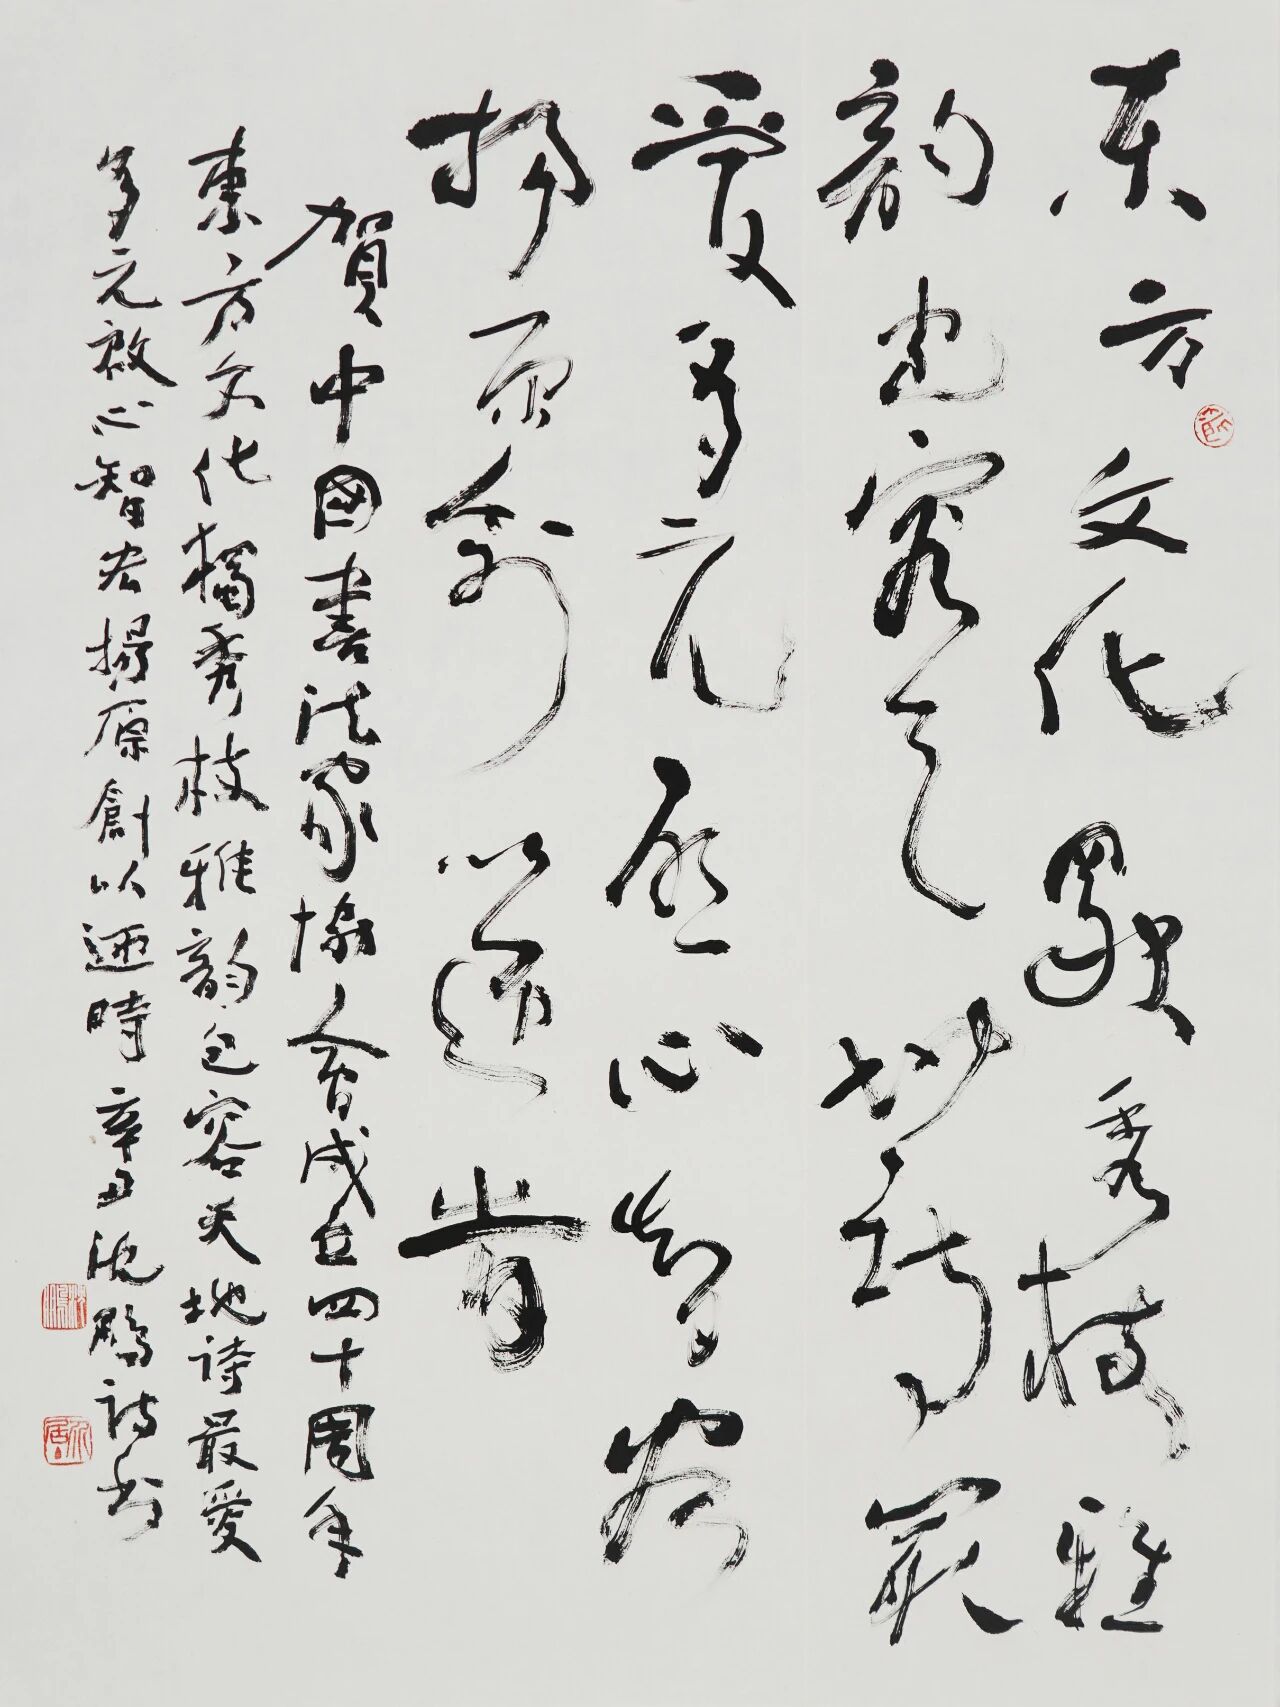 东方文化獨秀枝雅
韵包容天地詩最
愛多元啟心智宏
揚原創以時
賀中國書法家協會成立四十周年
東方文化獨秀枝雅韵包容天地詩最愛
多元啟心智宏揚原創以時辛丑沈鵬詩書